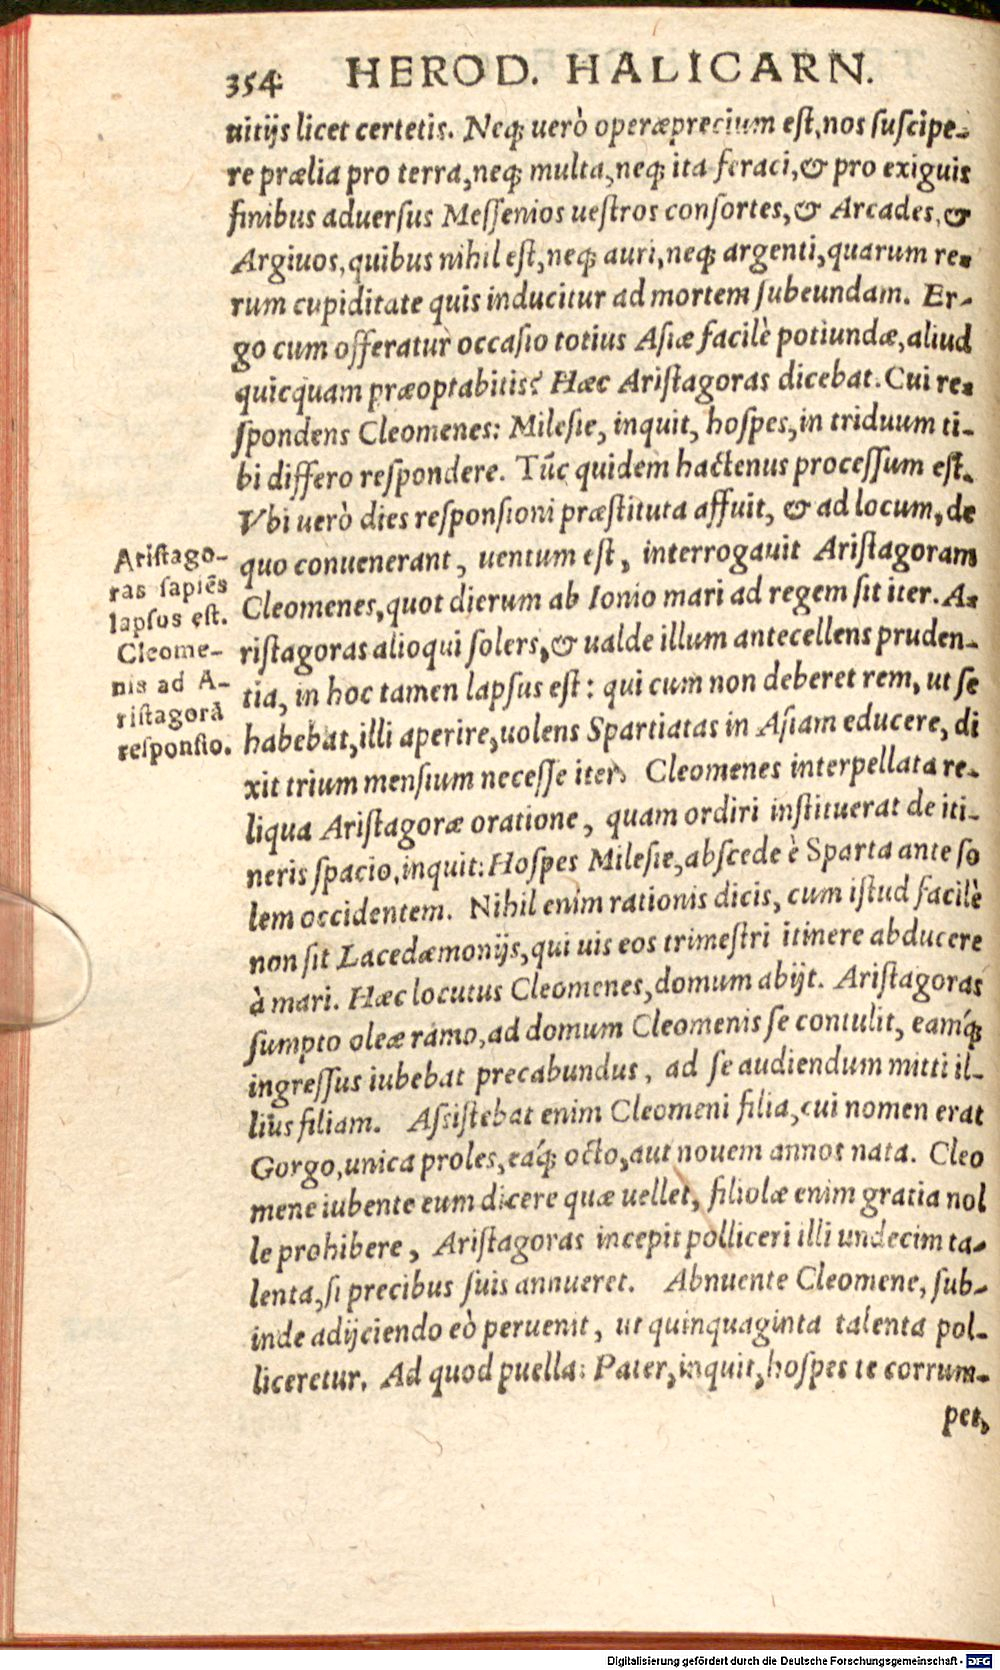 354 HEROD. HALICARN.
uitijs licet certetis. Neq; uerò operæprecium est, nos suscipe-
re prælia pro terra, neq; multa, neq; ita feraci, & pro exiguis
finibus aduersus Messenios uestros consortes, & Arcades, &
Argiuos, quibus nihil est, neq; auri, neq; argenti, quarum re-
rum cupiditate quis inducitur ad mortem subeundam. Er-
go cum offeratur occasio totius Asiæ facilè potiundæ, aliud
quicquam præoptabitis? Hæc Aristagoras dicebat. Cui re-
spondens Cleomenes: Milesie, inquit, hospes, in triduum ti-
bi differo respondere. Tūc quidem hactenus processum est.
Vbi uerò dies responsioni præstituta affuit, & ad locum, de
quo conuenerant, uentum est, interrogauit Aristagoram
Cleomenes, quot dierum ab Ionio mari ad regem sit iter. A-
ristagoras alioqui solers, & ualde illum antecellens pruden-
tia, in hoc tamen lapsus est: qui cum non deberet rem, ut se
habebat, illi aperire, uolens Spartiatas in Asiam educere, di
xit trium mensium necesse iter. Cleomenes interpellata re-
liqua Aristagoræ oratione, quam ordiri instituerat de iti-
neris spacio, inquit: Hospes Milesie, abscede è Sparta ante so
lem occidentem. Nihil enim rationis dicis, cum istud facilè
non sit Lacedæmonijs, qui uis eos trimestri itinere abducere
à mari. Hæc locutus Cleomenes, domum abijt. Aristagoras
sumpto oleæ ramo, ad domum Cleomenis se contulit, eamq́;
ingressus iubebat precabundus, ad se audiendum mitti il-
lius filiam. Assistebat enim Cleomeni filia, cui nomen erat
Gorgo, unica proles, eaq́; octo, aut nouem annos nata. Cleo
mene iubente eum dicere quæ uellet, filiolæ enim gratia nol
le prohibere, Aristagoras incepit polliceri illi undecim ta-
lenta, si precibus suis annueret. Abnuente Cleomene, sub-
inde adijciendo eò peruenit, ut quinquaginta talenta pol-
liceretur. Ad quod puella: Pater, inquit, hospes te corrum-
pet,
Aristago-
ras sapiēs
lapsus est.
Cleome-
nis ad A-
ristagorā
responsio.
Digitalisierung gefördert durch die Deutsche Forschungsgemeinschaft - DFG